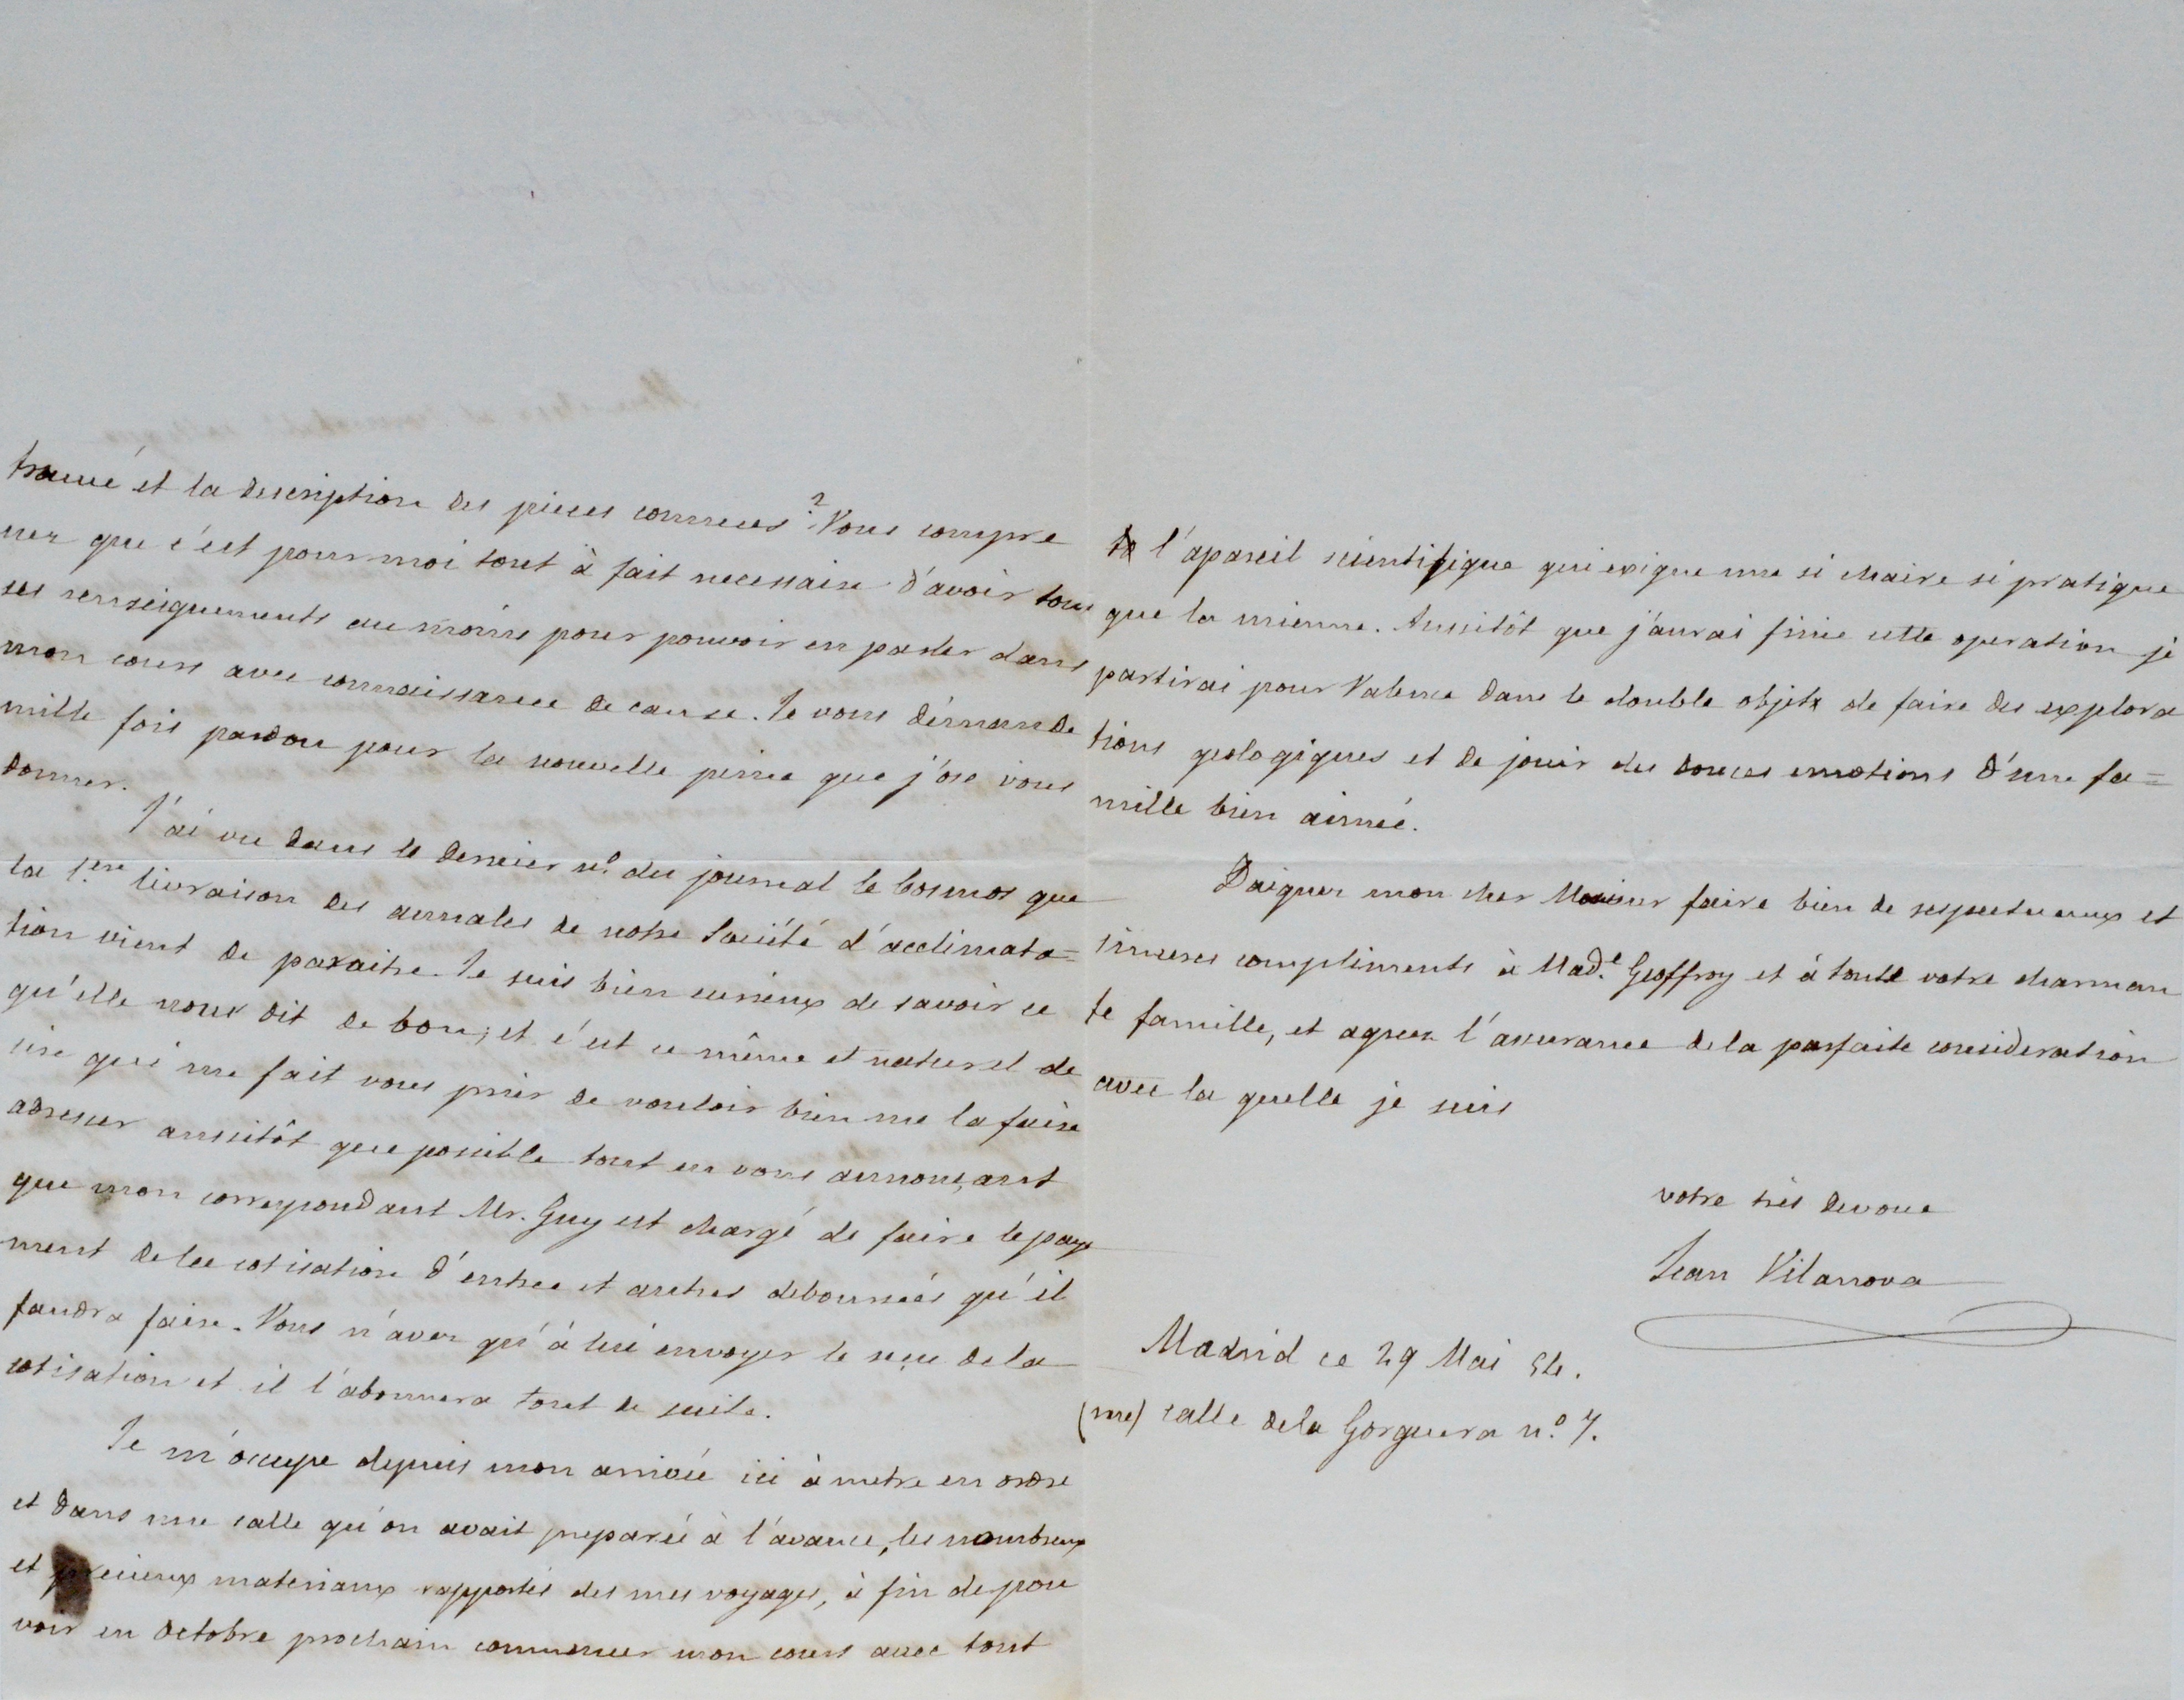 trouvé et la description des pieces connues? Vous compre
nez que c'est pour moi tout à fait necessaire d'avoir tous
ses renseignements au moins pour pouvoir en parler dans
mon cours avec connaissance de cause. Je vous démande
mille fois pardon pour la nouvelle peine que j'ose vous
donner.
J'ai vu dans le dernier nº. du journal le Cosmos que
la 1.ere livraison des annales de notre Société d'acclimata=
tion vient de paraitre. Je suis bien curieux de savoir ce
qu'elle nous dit de bon; et c'est ce même et naturel de
sire qui me fait vous prier de vouloir bien me la faire
adresser aussitôt que possible tout en vous annonçant
que mon correspondant Mr. Guy est chargé de faire le paye
ment de la cotisation d'entree et autres debourseés qu'il
faudra faire. Vous n'avez qu'à lui envoyer le reçu de la
cotisation et il l'abonnera tout de suite.
Je m'occupe depuis mon arriveé ici à metre en ordre
et dans une salle qu'on avait preparée à l'avance, les nombreux
et precieux materiaux rapportés des mes voyages, à fin de pou
voir en Octobre prochain commencer mon cours avec tout
l'apareil scientifique qui exigue une si chaire si pratique
que la mienne. Aussitôt que j'aurai finie cette operation je
partirai pour Valence dans le double objet de faire des explora
tions geologiques et de jouir des douces emotions d'une fa=
mille bien aimeé.
Daignez mon cher Monsieur faire bien de respectueux et
sinceres compliments à Mad.e Geoffroy et à toute votre charman
te famille, et agreez l'assurance de la parfaite consideration
avec la quelle je suis
votre très devoué
Jean Vilanova
Madrid ce 29 Mai 54.
(rue) calle de la Gorguera nº. 7.